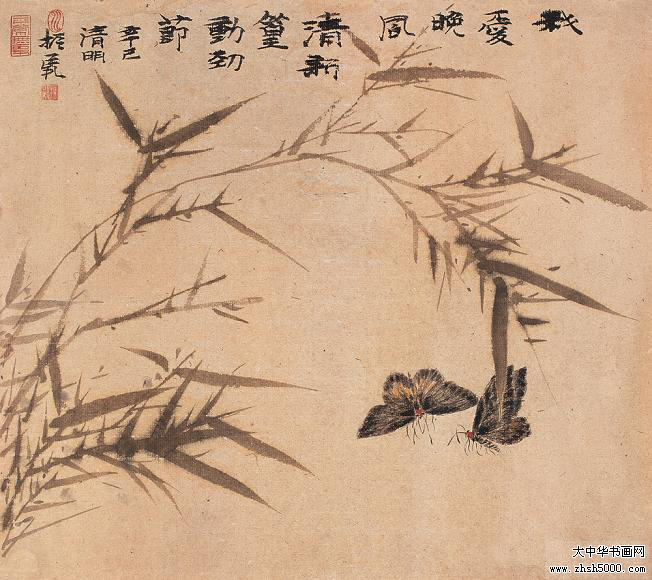 我愛晚風清新篁動勁節
辛巳
清明
大中华书画网
www.zhsh5000.com